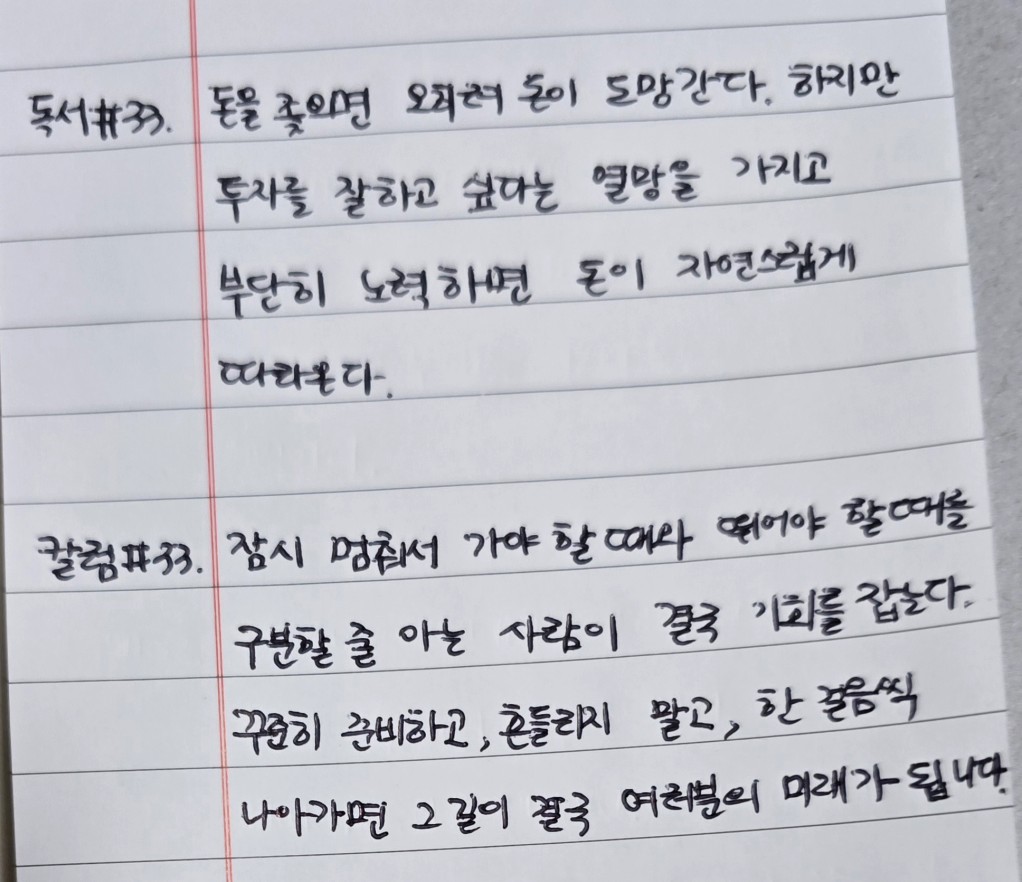 독서#33. 돈을 쫓으면 오히려 돈이 도망간다. 하지만
투자를 잘하고 싶다는 열망을 가지고
부단히 노력하면 돈이 자연스럽게
따라온다.
칼럼#33. 잠시 멈춰서 가야 할 때와 뛰어야 할 때를
구분할 줄 아는 사람이 결국 기회를 잡는다.
꾸준히 준비하고, 흔들리지 말고, 한 걸음씩
나아가면 그 길이 결국 여러분의 미래가 됩니다.